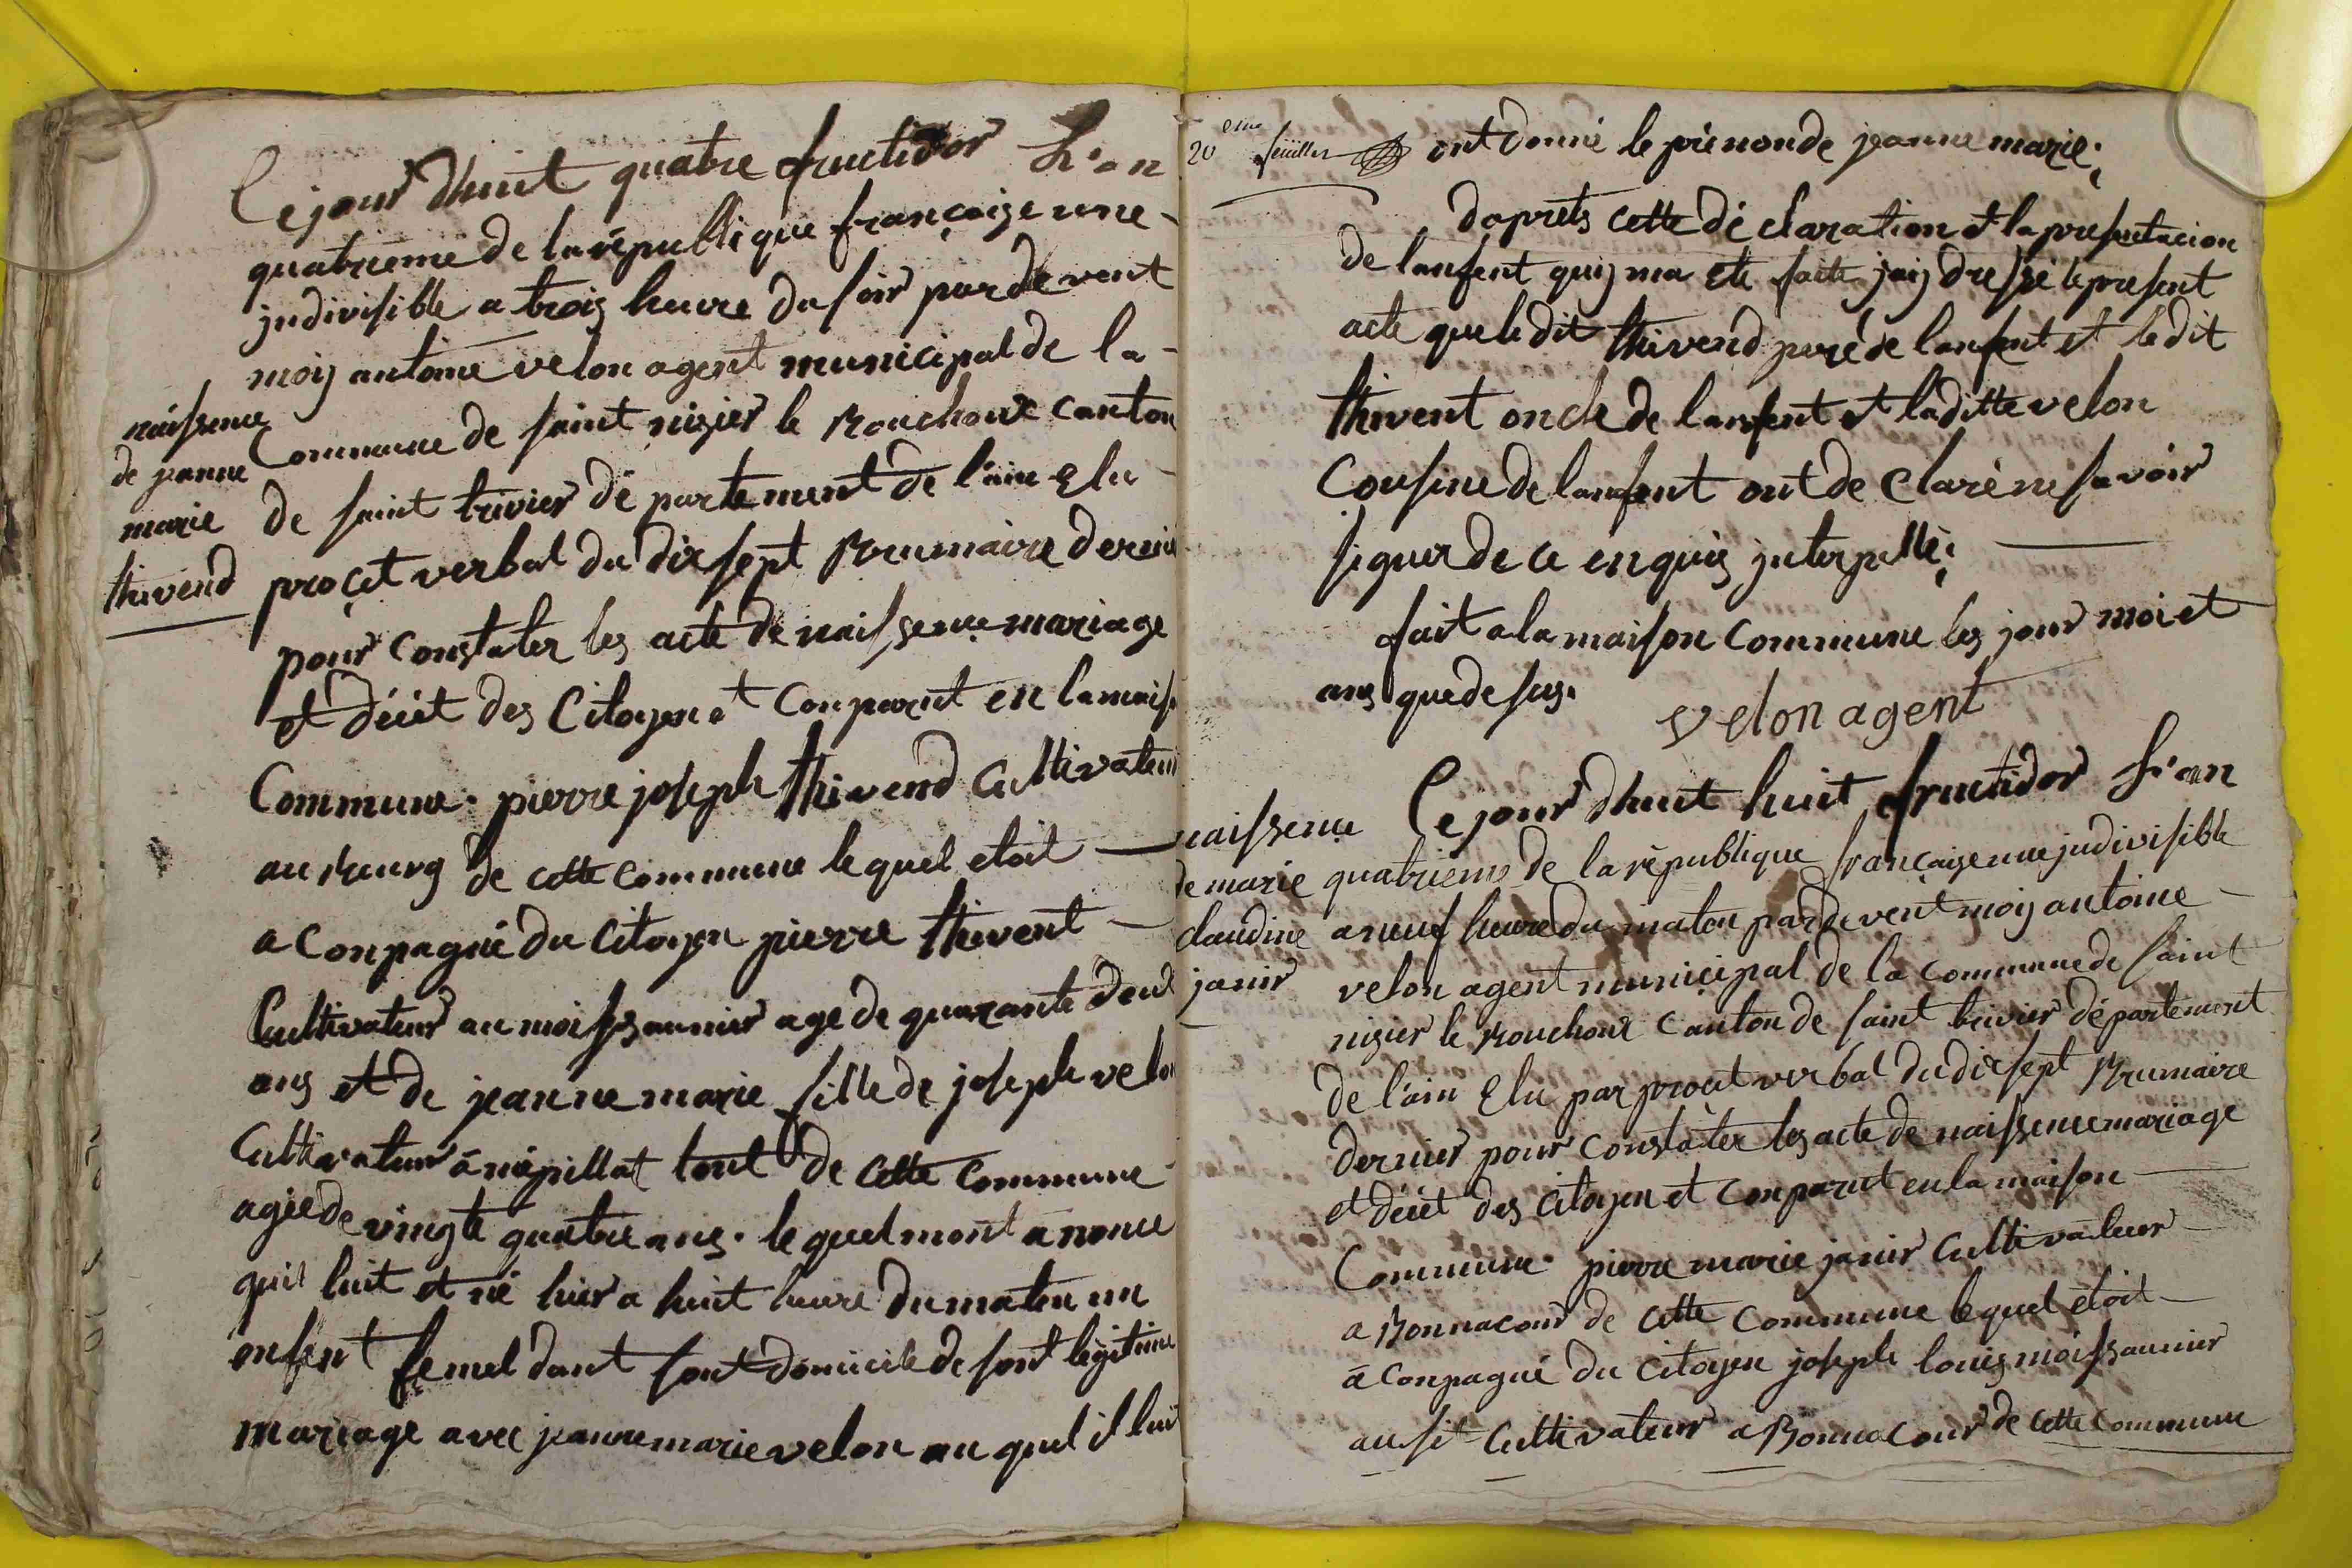 Cejour dhuit quatre fructidor L'an
quatrieme de la république françoise une
jndivisible a trois heure du soir par de vent
moij antoine velon agent municipal de la
naissence
de jeanne
marie
thivend
Commune de saint nizier le Bouchoux canton
de saint trivier dé partement de l'ain Elu
procet verbal du dix sept Brumaire dernie
pour constater les acte de naissence mariage
et décét des Citoyen et Conparut en la mais
Commune. pierre joseph thivend cultivateur
au Bourg de cette commune le quel etoit
a Conpagné du citoyen pierre thivent
Cultivateur au moissaunier age de quarante deux
ans et de jeanne marie fille de joseph velon
Cultivateur à népillat tout de cette commune
agée de vingte quatre ans. le quel mont anonce
quil luit et né hier a huit heure du maten un
enfent femel dant sont domicile de sont légitime
mariage avec jeanne marie velon au quel il lui
20 eme feüiller ont donné le prénon de jeanne marie.
daprets cette dé claration et la presentacion
de lanfent quij ma ete faite jaij dressé le present
acte que le dit thivend pere de lanfent et le dit
thivent oncle de lanfent et laditte velon
Cousine de lanfent ont de claré ne savoir
signer de ce enquis jnterpellé.
fait a la maison commune les jour moi et
ans que de sus.
velon agent
naissence
de marie
claudine
janir
Cejour dhuit huit fructidor L'an
quatrieme de la république françoise une jndivisible
a neuf heure du maten par de vent moij antoine
velon agent municipal de la commune de saint
nizier le Bouchoux canton de saint trivier département
de l'ain Elu par procet verbal du dix sept Brumaire
dernier pour constater les acte de naissence mariage
et décét des citoyen et conparut en la maison
Commune. pierre marie janir cultivateur
a Bonnacour de cette commune le quel etoit
a conpagné du citoyen joseph louis moissaunier
ausit cultivateur a Bonnacour de cette commune